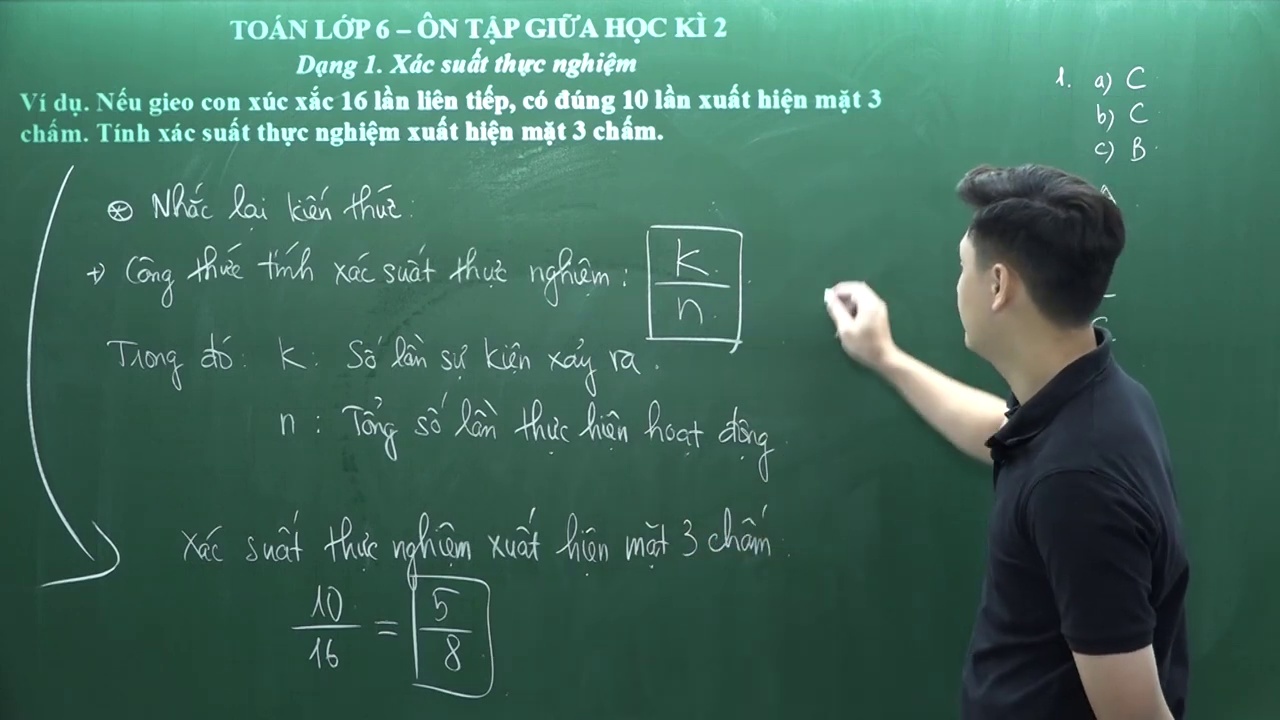 TOÁN LỚP 6 – ÔN TẬP GIỮA HỌC KÌ 2
Dạng 1. Xác suất thực nghiệm
Ví dụ. Nếu gieo con xúc xắc 16 lần liên tiếp, có đúng 10 lần xuất hiện mặt 3
chấm. Tính xác suất thực nghiệm xuất hiện mặt 3 chấm.
Nhắc lại kiến thức:
+) Công thức tính xác suất thực nghiệm:
k
n
Trong đó: k: Số lần sự kiện xảy ra.
n: Tổng số lần thực hiện hoạt động.
Xác suất thực nghiệm xuất hiện mặt 3 chấm:
10
16
=
5
8
1. a) C
b) C
c) B